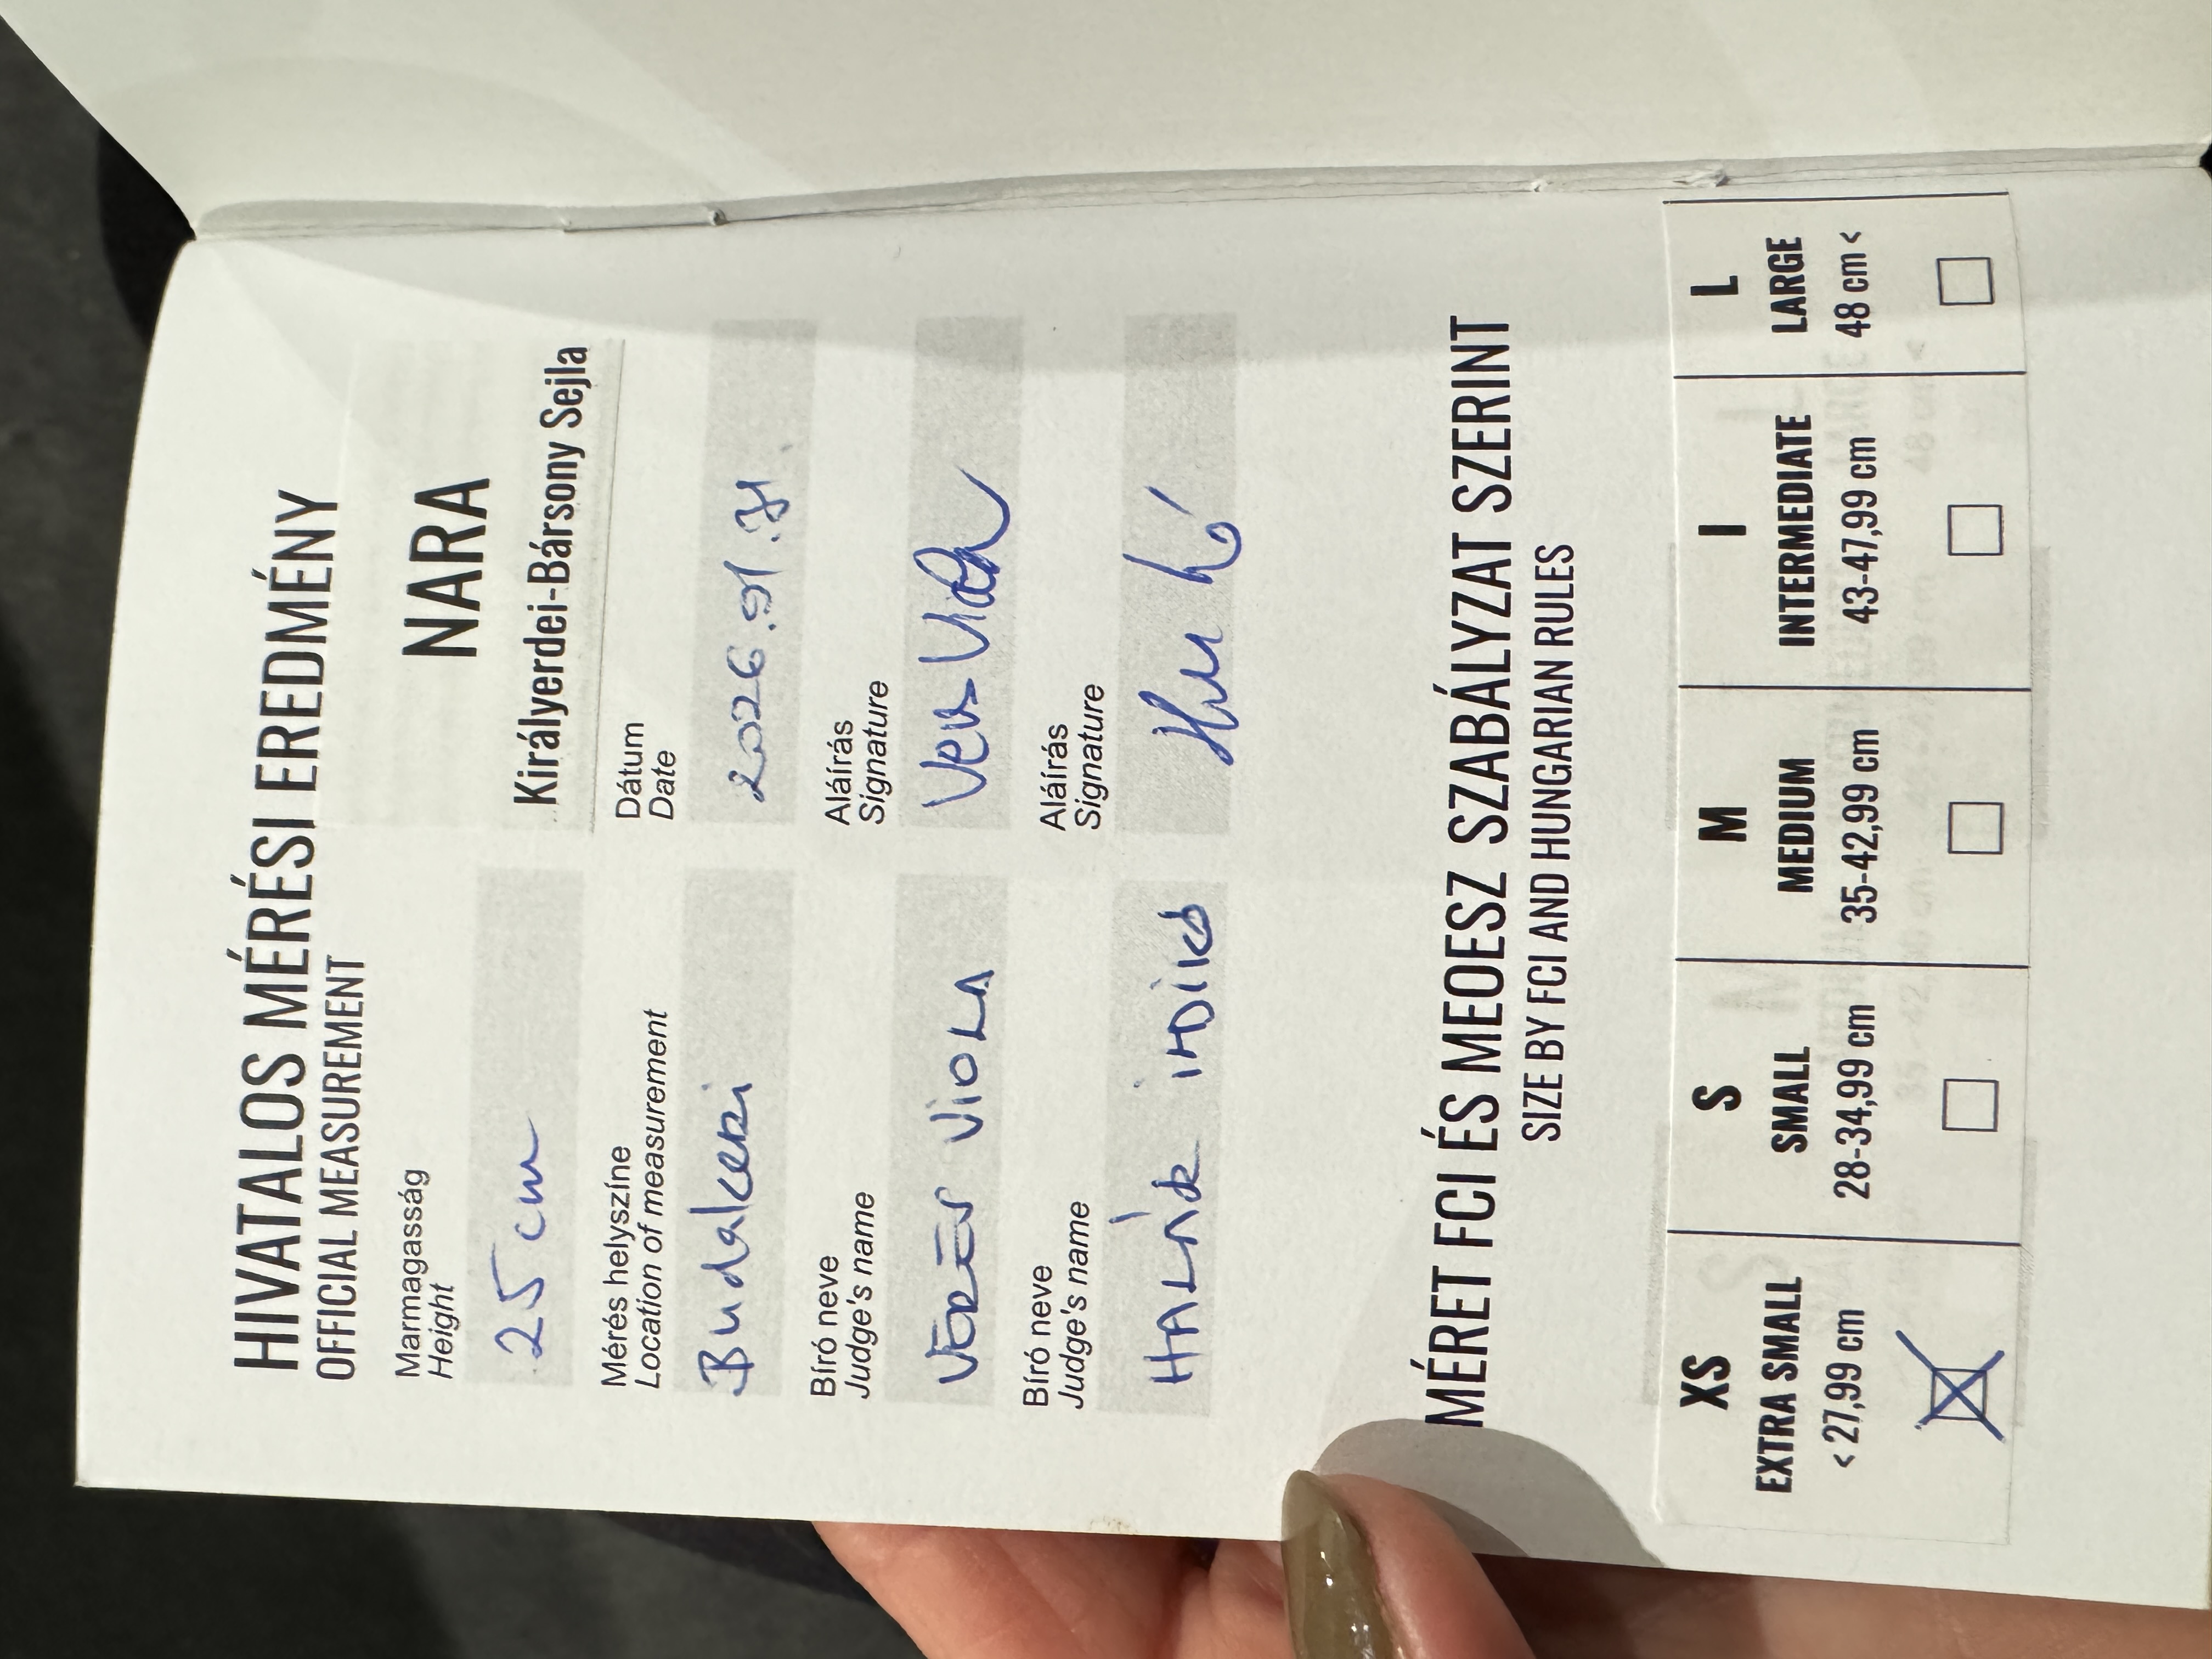 HIVATALOS MÉRÉSI EREDMÉNY
OFFICIAL MEASUREMENT
NARA
Királyerdei-Bársony Sejla
Marmagasság
Height
25 cm
Dátum
Date
2026.01.31
Mérés helyszíne
Location of measurement
Budakeszi
Aláírás
Signature
Bíró neve
Judge's name
VÖRÖS VIOLA
Aláírás
Signature
Bíró neve
Judge's name
HALÁK ILDIKÓ
MÉRET FCI ÉS MEOESZ SZABÁLYZAT SZERINT
SIZE BY FCI AND HUNGARIAN RULES
XS
EXTRA SMALL
< 27,99 cm
S
SMALL
28-34,99 cm
M
MEDIUM
35-42,99 cm
I
INTERMEDIATE
43-47,99 cm
L
LARGE
48 cm <